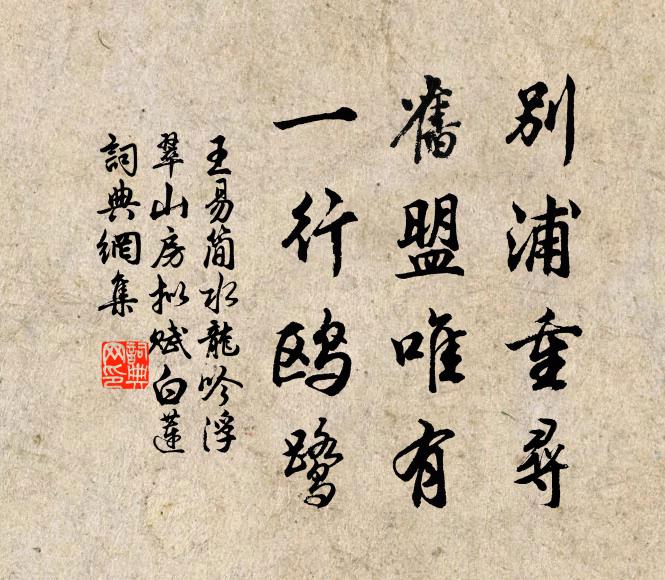 別浦重尋
舊盟唯有
一行鷗鷺
王易簡水龍吟浮
翠山房拟賦白蓮
詞典網集
詞典網印